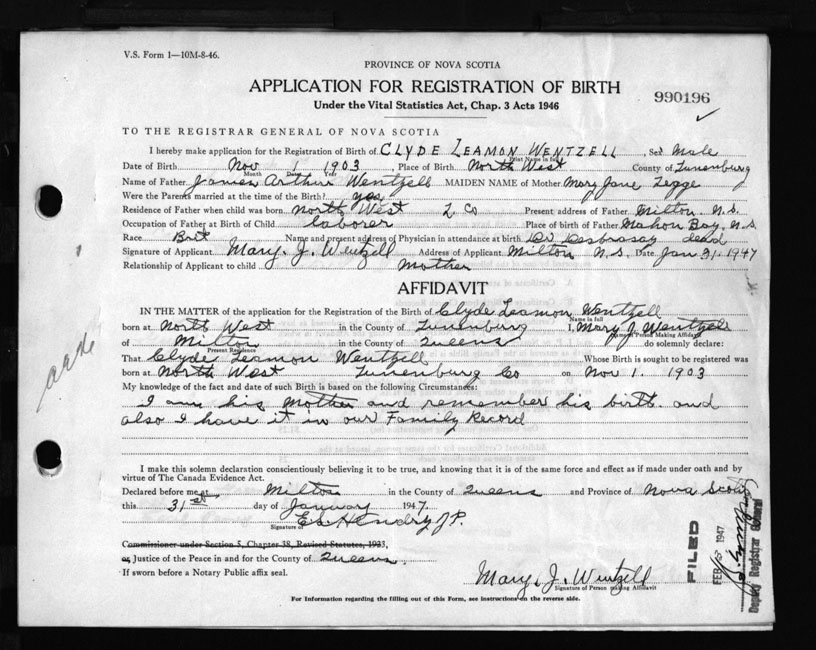 V.S. Form 1—10M-8-46.
PROVINCE OF NOVA SCOTIA
APPLICATION FOR REGISTRATION OF BIRTH
990196
Under the Vital Statistics Act, Chap. 3 Acts 1946
TO THE REGISTRAR GENERAL OF NOVA SCOTIA
I hereby make application for the Registration of Birth of CLYDE LEAMON WENTZELL, Sex Male
Print Name in full
Date of Birth Nov 1 1903, Place of Birth North West County of Lunenburg
Month Date Year
Name of Father James Arthur Wentzell MAIDEN NAME of Mother Mary Jane Legge
Were the Parents married at the time of the Birth? yes
Residence of Father when child was born North West L Co Present address of Father Milton N.S.
Occupation of Father at Birth of Child laborer Place of birth of Father Mahon Bay, N.S
Race Brit Name and present address of Physician in attendance at birth Dr Desbrasay dead
Signature of Applicant Mary. J. Wentzell Address of Applicant Milton N.S. Date Jan 31. 1947
Relationship of Applicant to child Mother
AFFIDAVIT
IN THE MATTER of the application for the Registration of the Birth of Clyde Leamon Wentzell
Name in full
born at North West in the County of Lunenburg I, Mary J. Wentzell
Name of Person Making Affidavit
of Milton in the County of Queens do solemnly declare:
Present Residence
That Clyde Leamon Wentzell Whose Birth is sought to be registered was
born at North West Lunenburg Co on Nov 1. 1903
My knowledge of the fact and date of such Birth is based on the following Circumstances:
I am his Mother and remember his birth. and
also I have it in our Family Record
I make this solemn declaration conscientiously believing it to be true, and knowing that it is of the same force and effect as if made under oath and by
virtue of The Canada Evidence Act.
Declared before me at Milton in the County of Queens and Province of Nova Scotia
this 31st day of January 1947.
Hendry J.P.
Signature of
Commissioner under Section 5, Chapter 38, Revised Statutes, 1923,
or Justice of the Peace in and for the County of Queens.
If sworn before a Notary Public affix seal.
Mary. J. Wentzell
Signature of Person making Affidavit
For Information regarding the filling out of this Form, see instructions on the reverse side.
FILED
FEB 1947
Deputy Registrar General